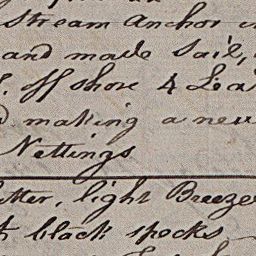 Stream Anchor
and made Sail,
off shore 4 Lea
making a new
Nettings
light Breeze
black specks